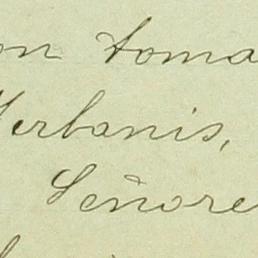 on toma
Verbanis,
Señore